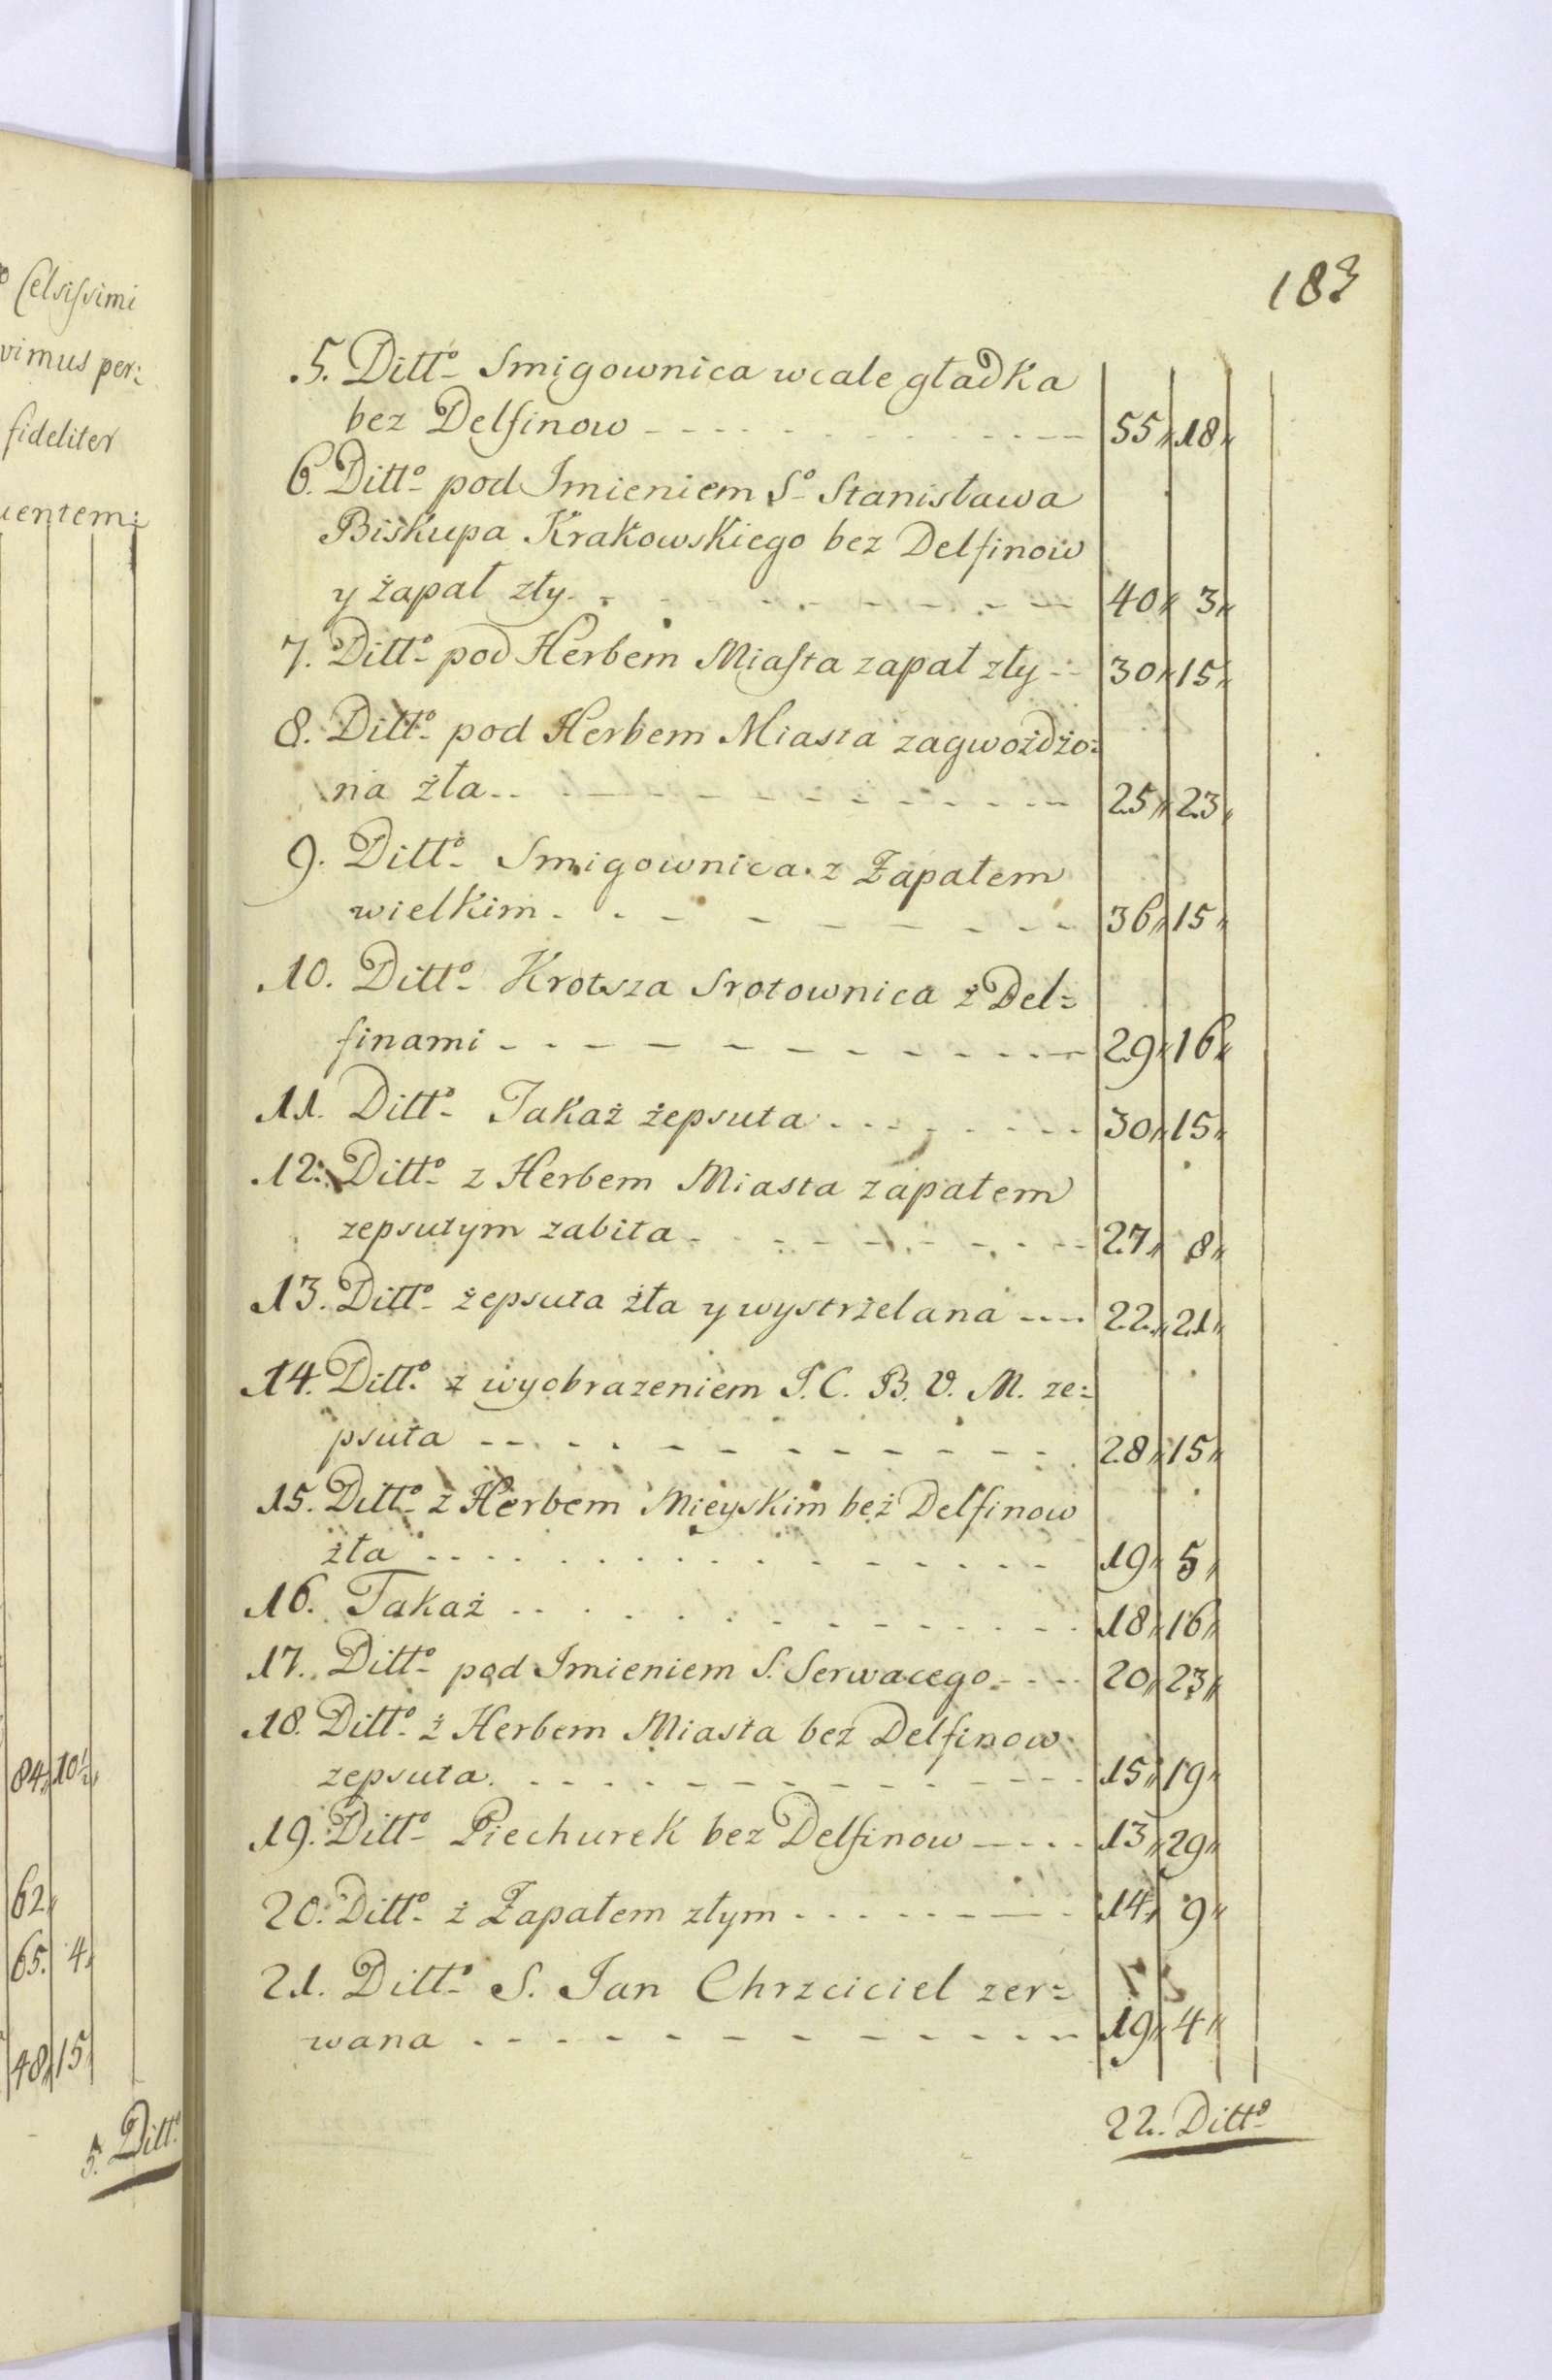 Celsissimi
vimus per:
fideliter
uentem:
84,, 10½,,
62,,
65. 4,,
48,, 15,,
5. Ditto
183
5. Ditto Smigownica wcale gładka
bez Delfinow - - - 55,, 18,,
6. Ditto pod Imieniem So Stanisława
Biskupa Krakowskiego bez Delfinow
y żapał zły - - - 40,, 3,,
7. Ditto pod Herbem Miasta zapał zły - - 30,, 15,,
8. Ditto pod Herbem Miasta zagwożdżo=
na żła - - - 25,, 23,,
9. Ditto Smigownica z Zapałem
wielkim - - - 36,, 15,,
10. Ditto Krotsza Srotownica ż Del=
finami - - - 29,, 16,,
11. Ditto Takaż żepsuta - - - 30,, 15,,
12. Ditto z Herbem Miasta zapałem
zepsutym zabita - - - 27,, 8,,
13. Ditto żepsuta żła y wystrżelana - - - 22,, 21,,
14. Ditto ż wyobrazeniem I. C. B. V. M. ze=
psuta - - - 28,, 15,,
15. Ditto ż Herbem Mieyskim beż Delfinow
żła - - - 19,, 5,,
16. Takaż - - - 18,, 16,,
17. Ditto pod Imieniem S. Serwacego - - - 20,, 23,,
18. Ditto ż Herbem Miasta beż Delfinow
zepsuta - - - 15,, 19,,
19. Ditto Piechurek bez Delfinow - - - 13,, 29,,
20. Ditto ż Zapałem złym - - - 14,, 9,,
21. Ditto S. Jan Chrzciciel zer=
wana - - - 19,, 4,,
22. Ditto